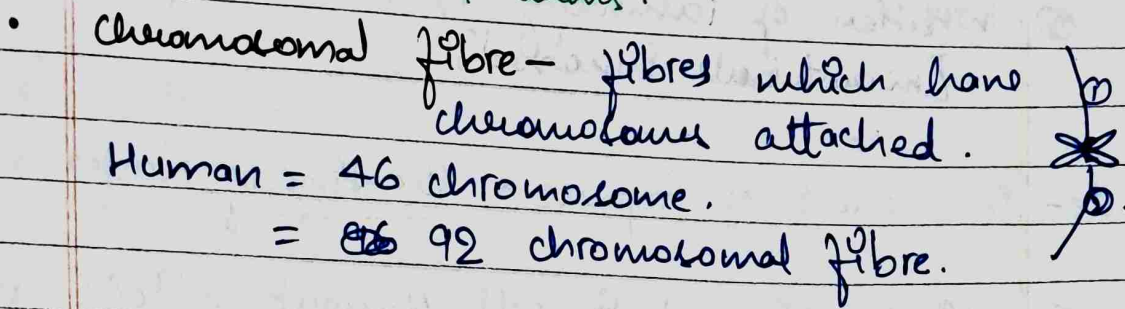 • Chromosomal fibre - fibres which have ①
chromosomes attached.
Human = 46 chromosome. ②
= 92 chromosomal fibre.